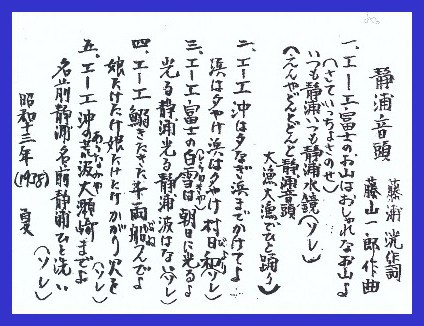 静浦音頭
藤浦 洸作詞
藤山一郎作曲
一、エーエ 富士のお山はおしゃれなお山よ
(さていっちょさのせ)
いつも静浦いつも静浦水鏡(ソレ)
(えんやどんどんと 静浦音頭
大漁大漁でひと踊り)
二、エーエ 沖は夕なぎ浜までかけてよ
浜は夕やけ浜は夕やけ 村日和(ソレ)
三、エーエ 富士の白雪は朝日に光るよ
光る静浦光る静浦 波はない(ソレ)
四、エーエ 鰯きたきた 千両船んでよ
娘たけたけ娘たけたけ かがり火を(ソレ)
五、エーエ 沖の荒波大瀬崎までよ
名前静浦名前静浦 ひと洗い(ソレ)
昭和十三年(1938) 夏